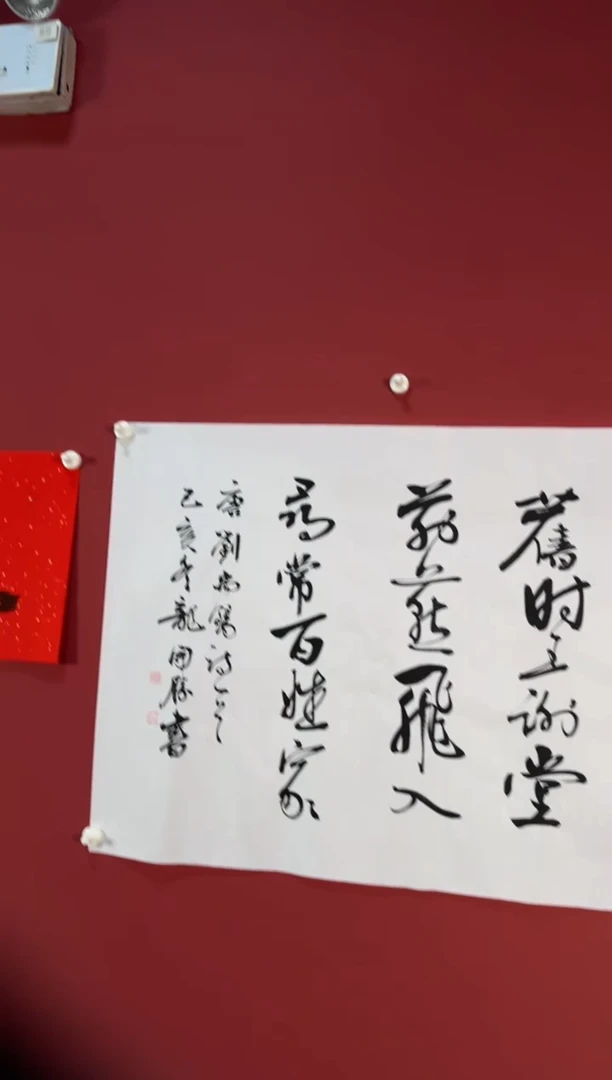 舊时王謝堂
前燕飛入
尋常百姓家
唐劉禹錫詩一首
己亥冬龍開勝書